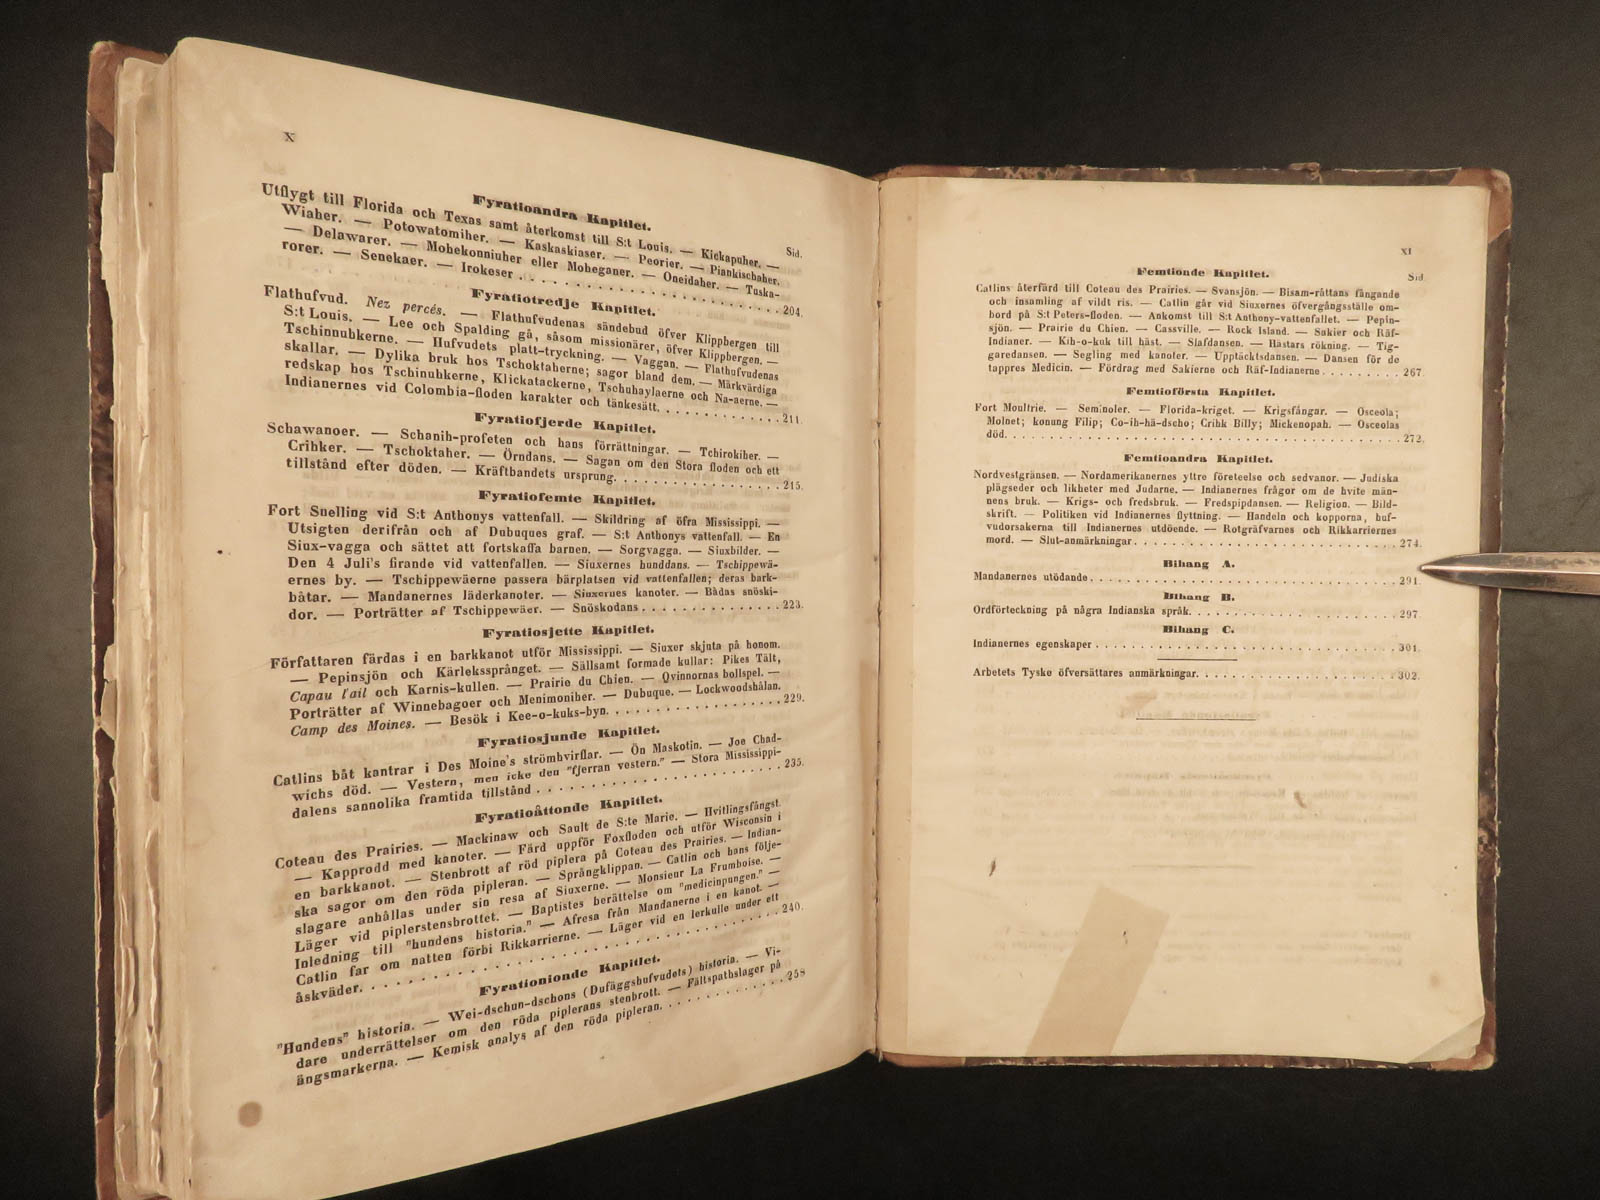 X
Fyratioandra Kapitlet.
Sid.
Utflygt till Florida och Texas samt återkomst till S:t Louis. — Kickapuher. —
Wiaher. — Potowatomiher. — Kaskaskiaser. — Peorier. — Piankischaher.
— Delawarer. — Mohekonniuher eller Moheganer. — Oneidaher. — Tuska-
rorer. — Senekaer. — Irokeser . . . . . . . . . . 204.
Fyratiotredje Kapitlet.
Flathufvud. Nez percés. — Flathufvudenas sändebud öfver Klippbergen till
S:t Louis. — Lee och Spalding gå, såsom missionärer, öfver Klippbergen. —
Tschinnubkerne. — Hufvudets platt-tryckning. — Vaggan. — Flathufvudenas
skallar. — Dylika bruk hos Tschoktaherne; sagor bland dem. — Märkvärdiga
redskap hos Tschinubkerne, Klickatackerne, Tschuhaylaerne och Na-aerne. —
Indianernes vid Colombia-floden karakter och tänkesätt. . . . . . . . . . 211.
Fyratiofjerde Kapitlet.
Schawanoer. — Schanih-profeten och hans förrättningar. — Tchirokiher. —
Crihker. — Tschoktaher. — Örndans. — Sagan om den Stora floden och ett
tillstånd efter döden. — Kräftbandets ursprung. . . . . . . . . . 215.
Fyratiofemte Kapitlet.
Fort Snelling vid S:t Anthonys vattenfall. — Skildring af öfra Mississippi. —
Utsigten derifrån och af Dubuques graf. — S:t Anthonys vattenfall. — En
Siux-vagga och sättet att fortskaffa barnen. — Sorgvagga. — Siuxbilder. —
Den 4 Juli's firande vid vattenfallen. — Siuxernes hunddans. — Tschippewä-
ernes by. — Tschippewäerne passera bärplatsen vid vattenfallen; deras bark-
båtar. — Mandanernes läderkanoter. — Siuxernes kanoter. — Bådas snöski-
dor. — Porträtter af Tschippewäer. — Snöskodans . . . . . . . . . . 223.
Fyratiosjette Kapitlet.
Författaren färdas i en barkkanot utför Mississippi. — Siuxer skjuta på honom.
— Pepinsjön och Kärlekssprånget. — Sällsamt formade kullar: Pikes Tält,
Capau l'ail och Karnis-kullen. — Prairie du Chien. — Qvinnornas bollspel. —
Porträtter af Winnebagoer och Menimoniher. — Dubuque. — Lockwoodshålan.
Camp des Moines. — Besök i Kee-o-kuks-byn. . . . . . . . . . 229.
Fyratiosjunde Kapitlet.
Catlins båt kantrar i Des Moine's strömhvirflar. — Ön Maskotin. — Joe Chad-
wichs död. — Vestern, men icke den "fjerran vestern." — Stora Mississippi-
dalens sannolika framtida tillstånd . . . . . . . . . . 235.
Fyratioåttonde Kapitlet.
Coteau des Prairies. — Mackinaw och Sault de S:te Marie. — Hvitlingsfångst.
— Kapprodd med kanoter. — Färd uppför Foxfloden och utför Wisconsin i
en barkkanot. — Stenbrott af röd piplera på Coteau des Prairies. — Indian-
ska sagor om den röda pipleran. — Språngklippan. — Catlin och hans följe-
slagare anhållas under sin resa af Siuxerne. — Monsieur La Frumboise. —
Läger vid piplerstensbrottet. — Baptistes berättelse om "medicinpungen." —
Inledning till "hundens historia." — Afresa från Mandanerne i en kanot. —
Catlin far om natten förbi Rikkarrierne. — Läger vid en lerkulle under ett
åskväder. . . . . . . . . . 240.
Fyrationionde Kapitlet.
"Hundens" historia. — Wei-dschun-dschons (Dufäggshufvudets) historia. — Vi-
dare underrättelser om den röda piplerans stenbrott. — Fältspathslager på
ängsmarkerna. — Kemisk analys af den röda pipleran. . . . . . . . . . 258
XI
Femtionde Kapitlet.
Sid
Catlins återfärd till Coteau des Prairies. — Svansjön. — Bisam-råttans fångande
och insamling af vildt ris. — Catlin går vid Siuxernes öfvergångsställe om-
bord på S:t Peters-floden. — Ankomst till S:t Anthony-vattenfallet. — Pepin-
sjön. — Prairie du Chien. — Cassville. — Rock Island. — Sakier och Räf-
Indianer. — Kih-o-kuk till häst. — Slafdansen. — Hästars rökning. — Tig-
garedansen. — Segling med kanoter. — Upptäcktsdansen. — Dansen för de
tappres Medicin. — Fördrag med Sakierne och Räf-Indianerne . . . . . . . . . 267.
Femtioförsta Kapitlet.
Fort Moultrie. — Seminoler. — Florida-kriget. — Krigsfångar. — Osceola;
Molnet; konung Filip; Co-ih-hä-dscho; Crihk Billy; Mickenopah. — Osceolas
död. . . . . . . . . . 272.
Femtioandra Kapitlet.
Nordvestgränsen. — Nordamerikanernes yttre företeelse och sedvanor. — Judiska
plägseder och likheter med Judarne. — Indianernes frågor om de hvite män-
nens bruk. — Krigs- och fredsbruk. — Fredspipdansen. — Religion. — Bild-
skrift. — Politiken vid Indianernes flyttning. — Handeln och kopporna, huf-
vudorsakerna till Indianernes utdöende. — Rotgräfvarnes och Rikkarriernes
mord. — Slut-anmärkningar. . . . . . . . . . 274.
Bihang A.
Mandanernes utödande . . . . . . . . . . 291.
Bihang B.
Ordförteckning på några Indianska språk. . . . . . . . . . 297.
Bihang C.
Indianernes egenskaper . . . . . . . . . . 301.
Arbetets Tyske öfversättares anmärkningar. . . . . . . . . . 302.